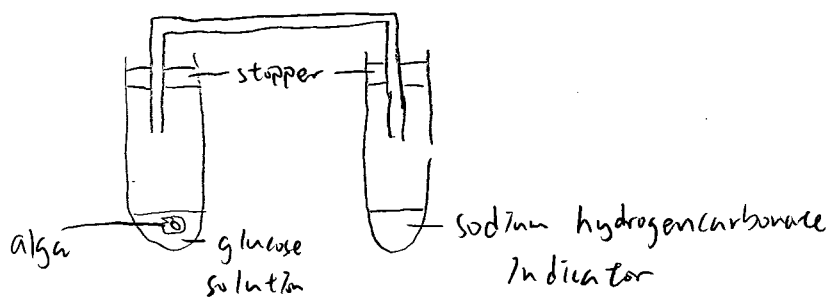 stopper
alga
glucose
solution
sodium hydrogencarbonate
indicator